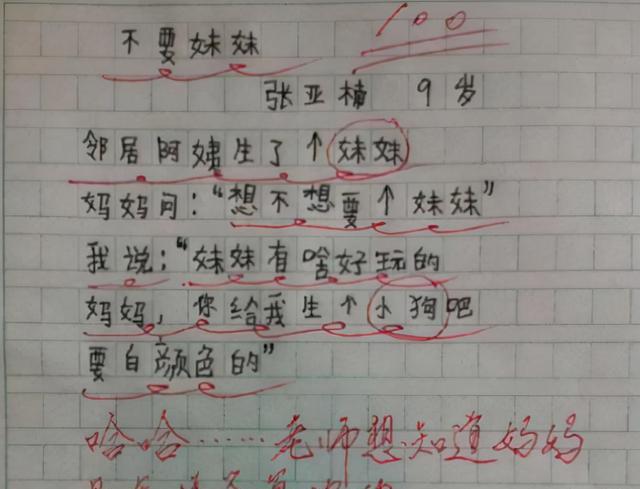 不要妹妹
100
张亚楠 9岁
邻居阿姨生了个妹妹
妈妈问：“想不想要个妹妹”
我说：“妹妹有啥好玩的
妈妈，你给我生个小狗吧
要白颜色的”
哈哈……老师想知道妈妈